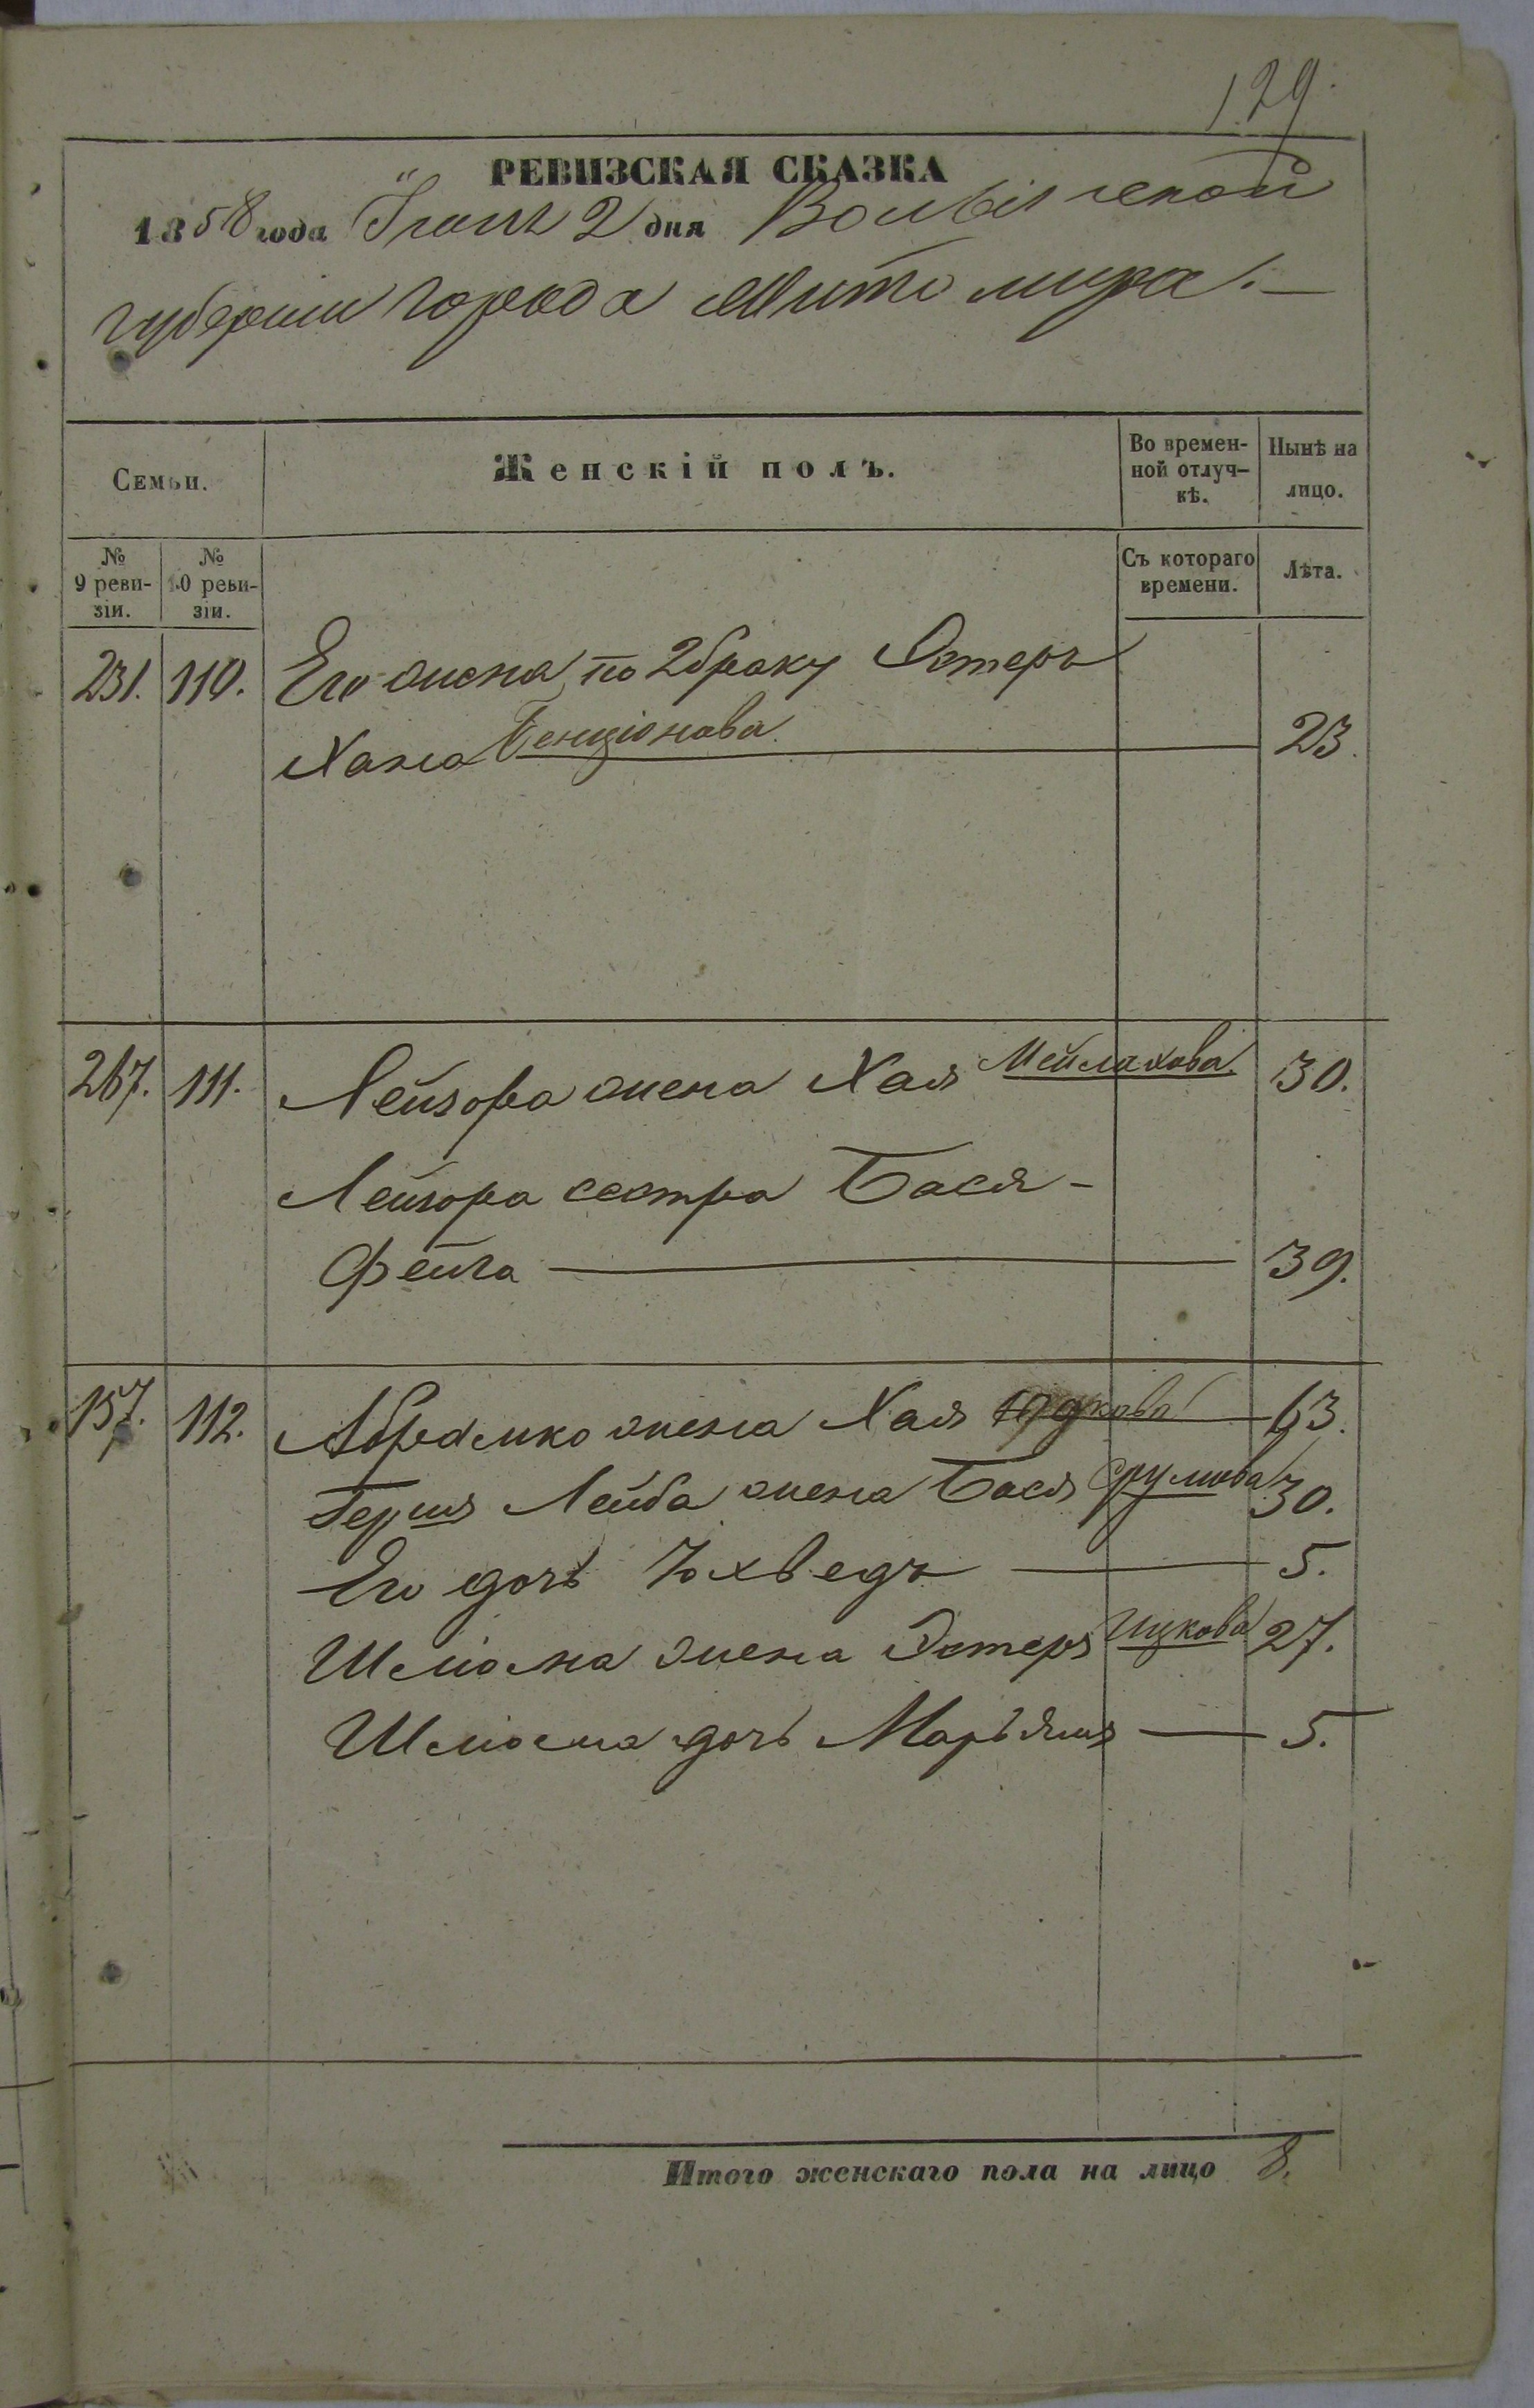 129.
РЕВИЗСКАЯ СКАЗКА
1858 года Іюня 2 дня Волынской
губерніи города Житомира.—
Семьи.
Женскій полъ.
Во времен-
ной отлуч-
кѣ.
Нынѣ на
лицо.
№
9 реви-
зіи.
№
10 реви-
зіи.
Съ котораго
времени.
Лѣта.
231. 110. Его жена по 2 браку Эстеръ
Хана Бенціонова 23.
267. 111. Лейзора жена Хая Мейлахова. 30.
Лейзора сестра Бася -
Фейга 39.
157. 112. Абрамко жена Хая Юдкова 63.
Герша Лейба жена Бася Срулова 30.
Его дочь Іохведъ 5.
Шліома жена Эстеръ Ицкова 27.
Шліома дочь Марьямъ 5.
Итого женскаго пола на лицо 8.